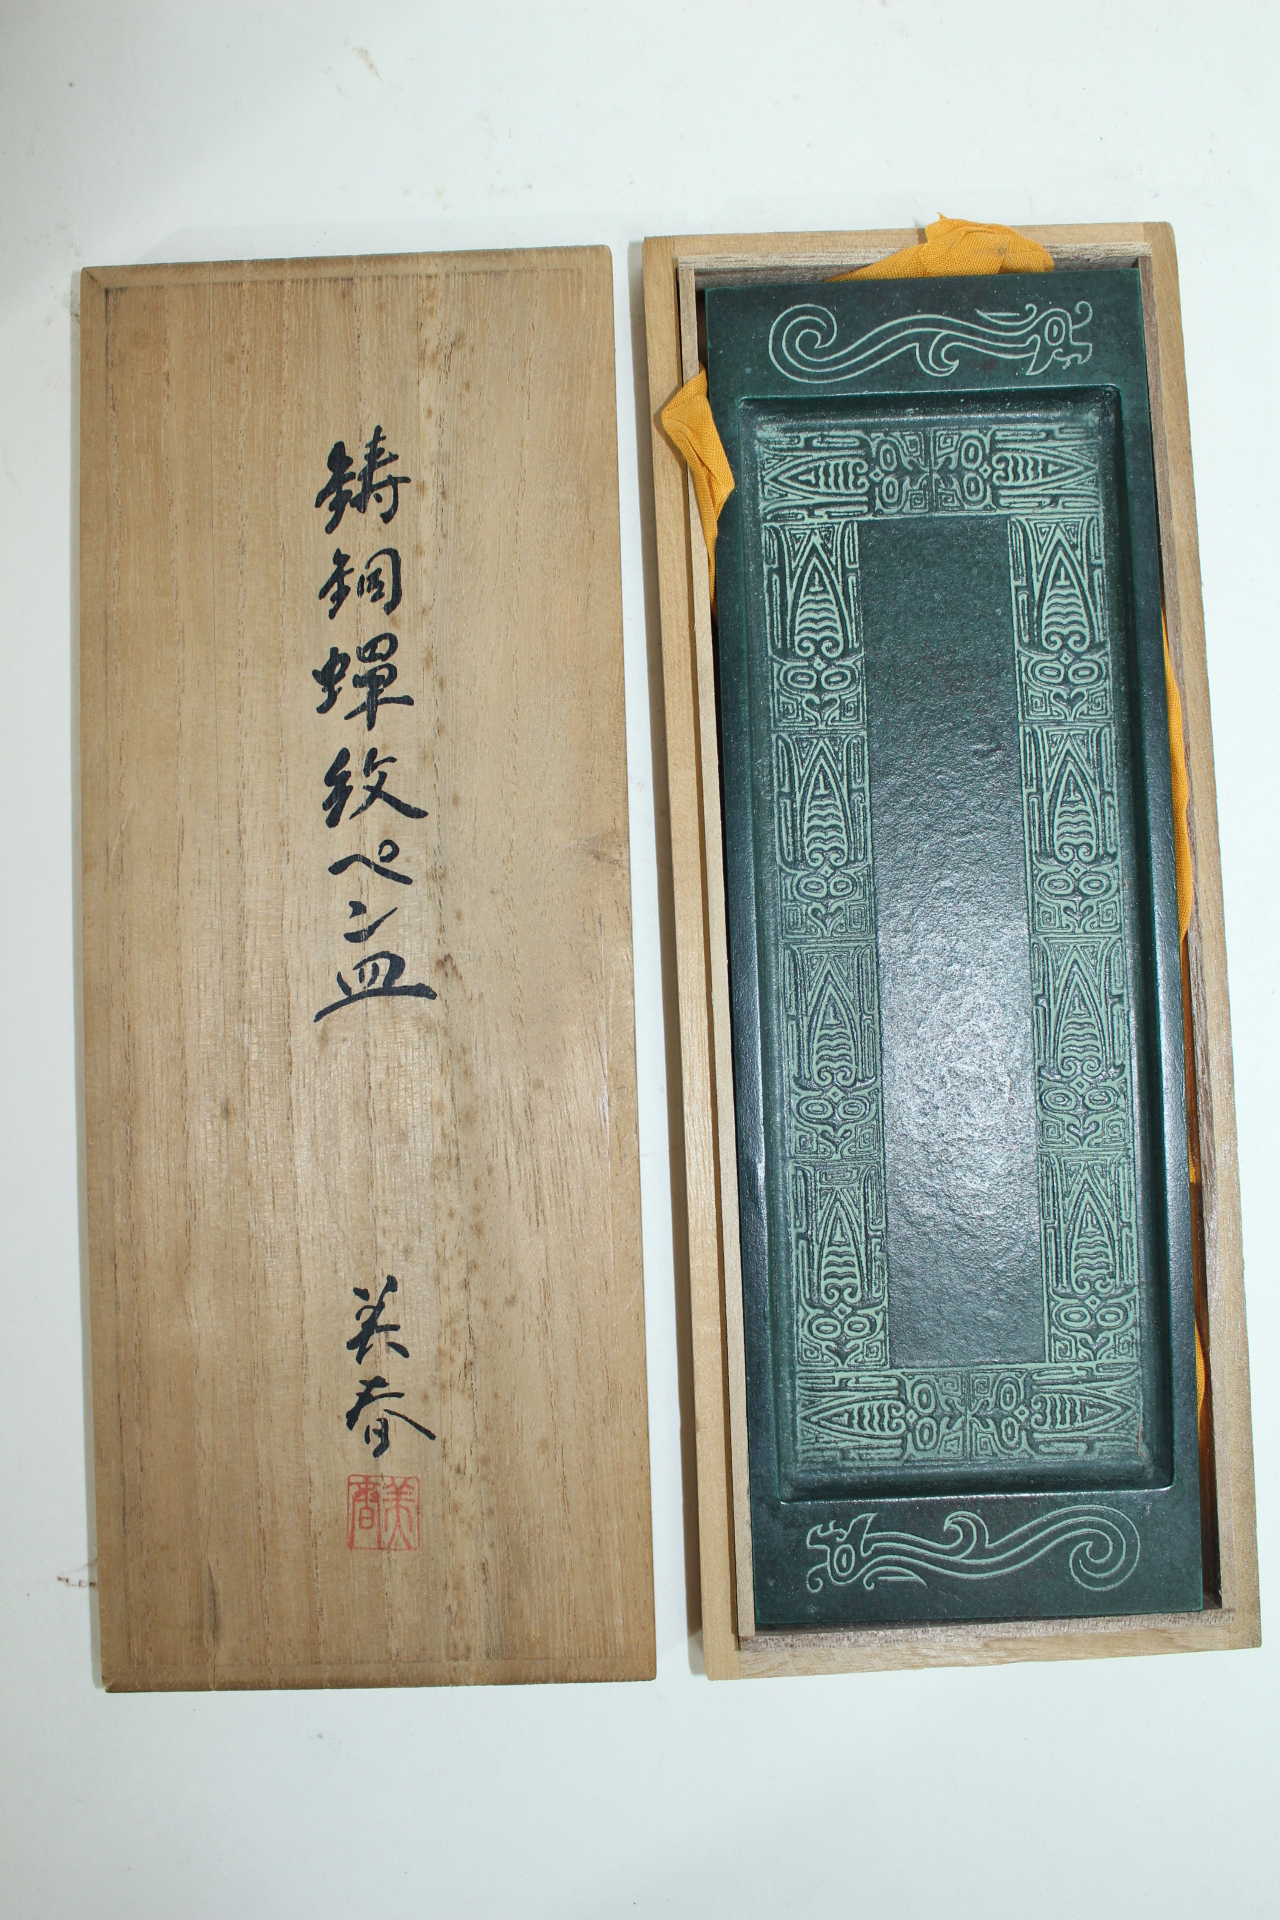 鋳銅蟬紋ペン皿
美春
美香